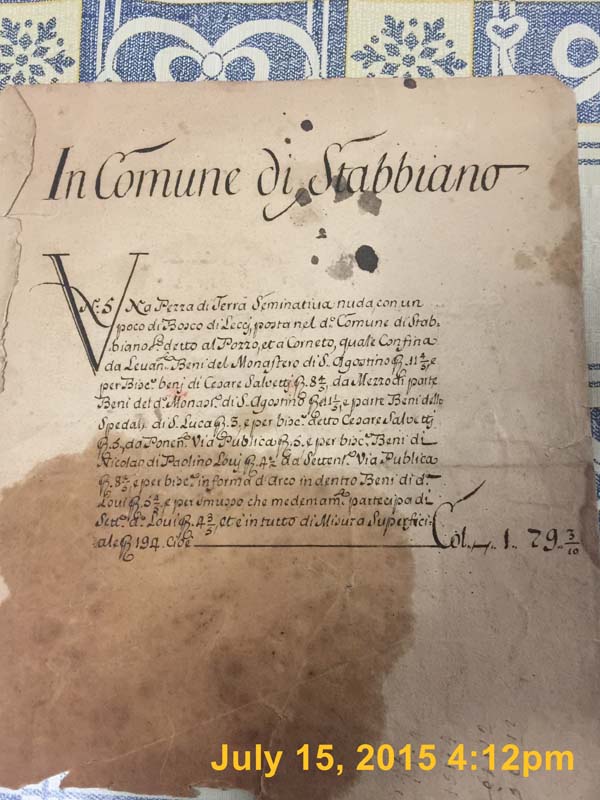 In Comune di Stabbiano
N.º 5 Vna Pezza di Terra Seminatiua nuda, con un
poco di Bosco di Leccj, posta nel d.º Comune di Stab-
biano l.º detto al Pozzo, et a Corneto, quale Confina
da Leuan.te Beni del Monastero di S. Agostino P. 11 4/5, e
per Bisc.º benj di Cesare Salvettj P. 8 2/5, da Mezzo dì parte
Beni del d.º Monast.º di S. Agostino P. 11 1/5, e parte Beni dello
Spedale di S. Luca P. 3, e per bisc.º detto Cesare Salvettj
P. 5, da Ponen.te Via Publica P. 5. e per bisc.º Beni di
Nicolao di Paolino Louij P. 4 1/2 da Setten.e Via Publica
P. 8 3/5, e per bisc.º in forma d'Arco in dentro Beni di d.º
Loui P. 5 2/5, e per smusso che medemam.te partecipa di
Sett.e d.º Loui P. 4 3/5, et è in tutto di Misura Superfici-
ale P. 194. cioè Col. 1. 29. 3/10
July 15, 2015 4:12pm